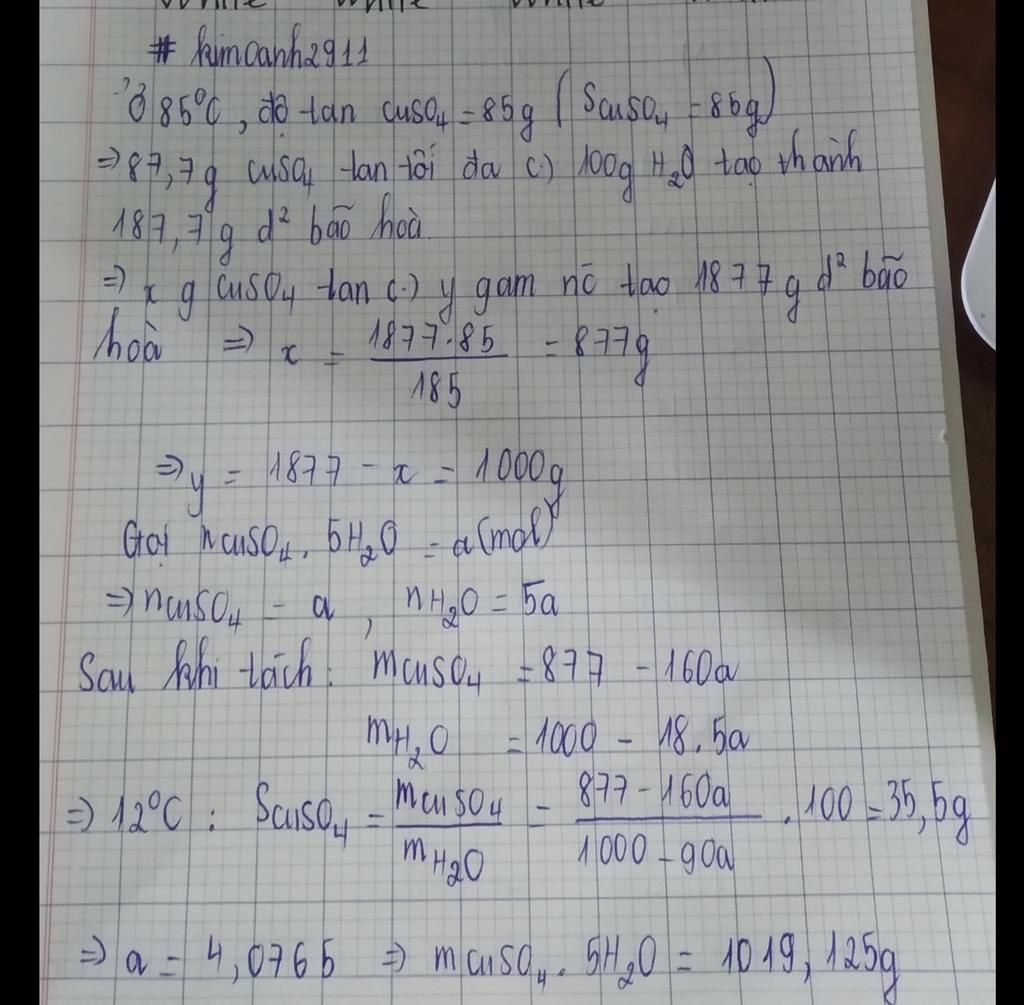 White White White
# kimoanh2911
Ở 85°C, độ tan CuSO₄ = 85g (SCuSO₄ = 85g)
⇒ 87,7g CuSO₄ tan tối đa (.) 100g H₂O tạo thành
187,7g d² bão hoà
⇒ x g CuSO₄ tan (.) y gam nc tạo 1877g d² bão
hoà ⇒ x = 1877.85 / 185 = 877g
⇒ y = 1877 - x = 1000g
Gọi nCuSO₄.5H₂O = a(mol)
⇒ nCuSO₄ = a, nH₂O = 5a
Sau khi tách: mCuSO₄ = 877 - 160a
mH₂O = 1000 - 18.5a
⇒ 12°C: SCuSO₄ = mCuSO₄ / mH₂O = 877-160a / 1000-90a . 100 = 35,5g
⇒ a = 4,0765 ⇒ mCuSO₄.5H₂O = 1019,125g